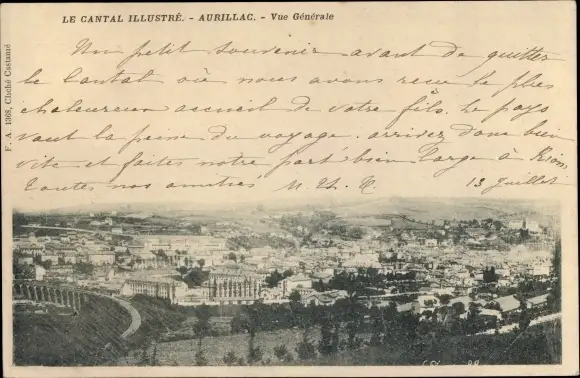 LE CANTAL ILLUSTRÉ. - AURILLAC. - Vue Générale
Un petit souvenir avant de quitter
le Cantal où nous avons reçu le plus
chaleureux accueil de votre fils. Le pays
vaut la peine du voyage. arrivez donc bien
vite et faites notre part bien large à Rion
toutes nos amitiés M. Th. R. 13 Juillet
F. A. 1368, Cliché Castamé